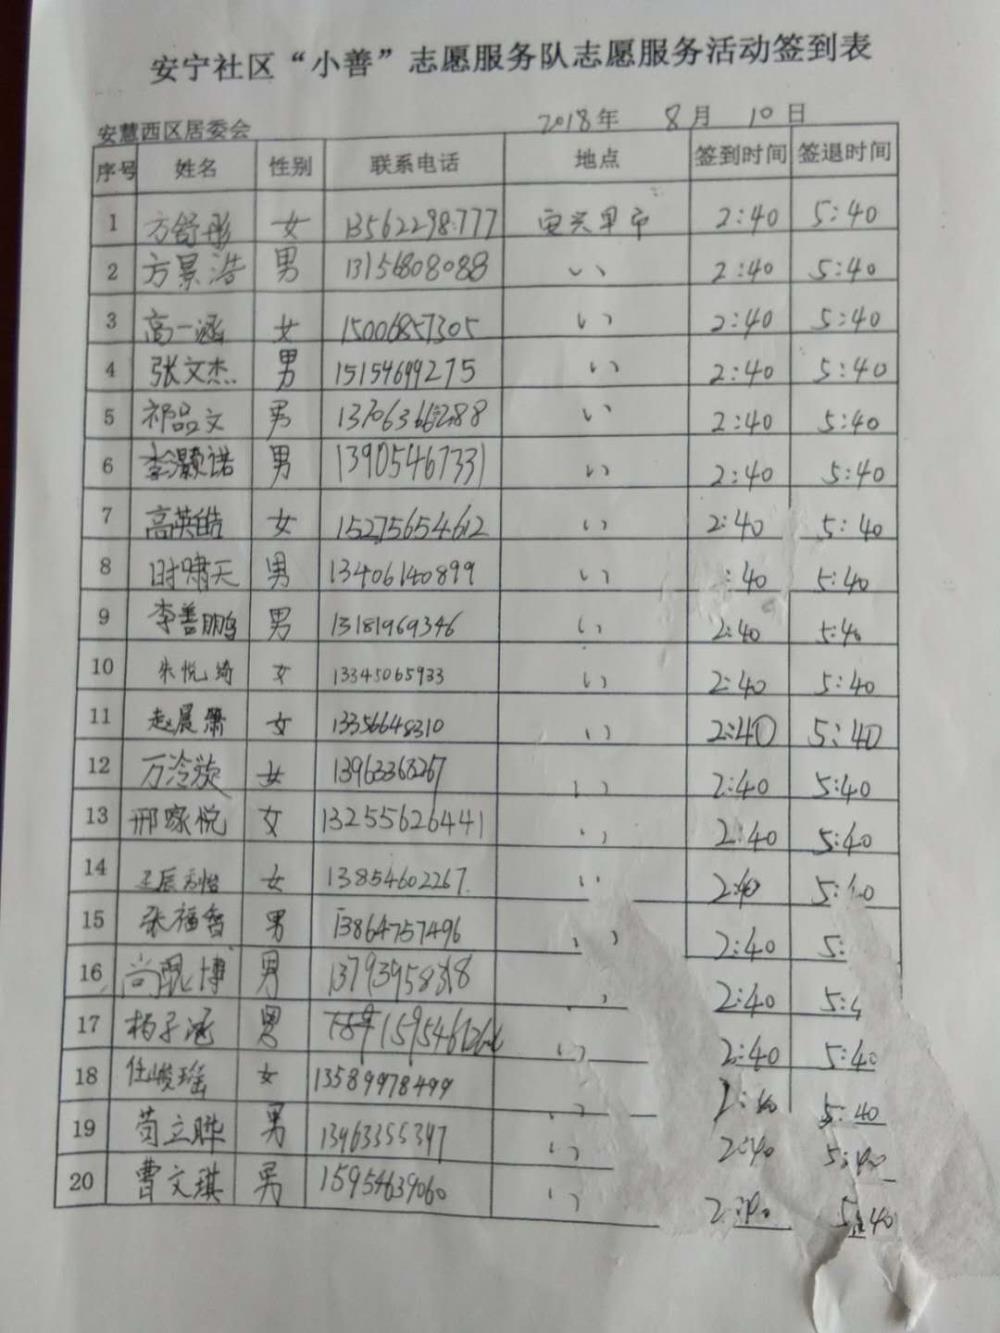 安宁社区“小善”志愿服务队志愿服务活动签到表
安慧西区居委会 2018年 8月 10日
序号 姓名 性别 联系电话 地点 签到时间 签退时间
1 方舒彤 女 13562298777 2:40 5:40
2 方景浩 男 13156808088 〃 2:40 5:40
3 高一涵 女 15006857305 〃 2:40 5:40
4 张文杰 男 15154699275 〃 2:40 5:40
5 祁品文 男 13706366288 〃 2:40 5:40
6 李灏诺 男 13905467331 〃 2:40 5:40
7 高英皓 女 15275654612 〃 2:40 5:40
8 时啸天 男 13406140899 〃 :40 5:40
9 李善鹏 男 13181969346 〃 2:40 5:40
10 朱悦绮 女 13345065933 〃 2:40 5:40
11 赵晨箫 女 13356648310 〃 2:40 5:40
12 万泠漩 女 13963363267 〃 2:40 5:40
13 邢家悦 女 13255626441 〃 2:40 5:40
14 女 13854602267 〃 2:40 5:40
15 张福智 男 13864757496 〃 2:40 5:
16 男 2:40 5:4
17 杨子涵 男 〃 2:40 5:40
18 任峻瑶 女 13589978499 〃 2:40 5:40
19 苟立晔 男 13963355347 〃 2:40 5:40
20 曹文琪 男 15954639060 〃 2:40 5:40